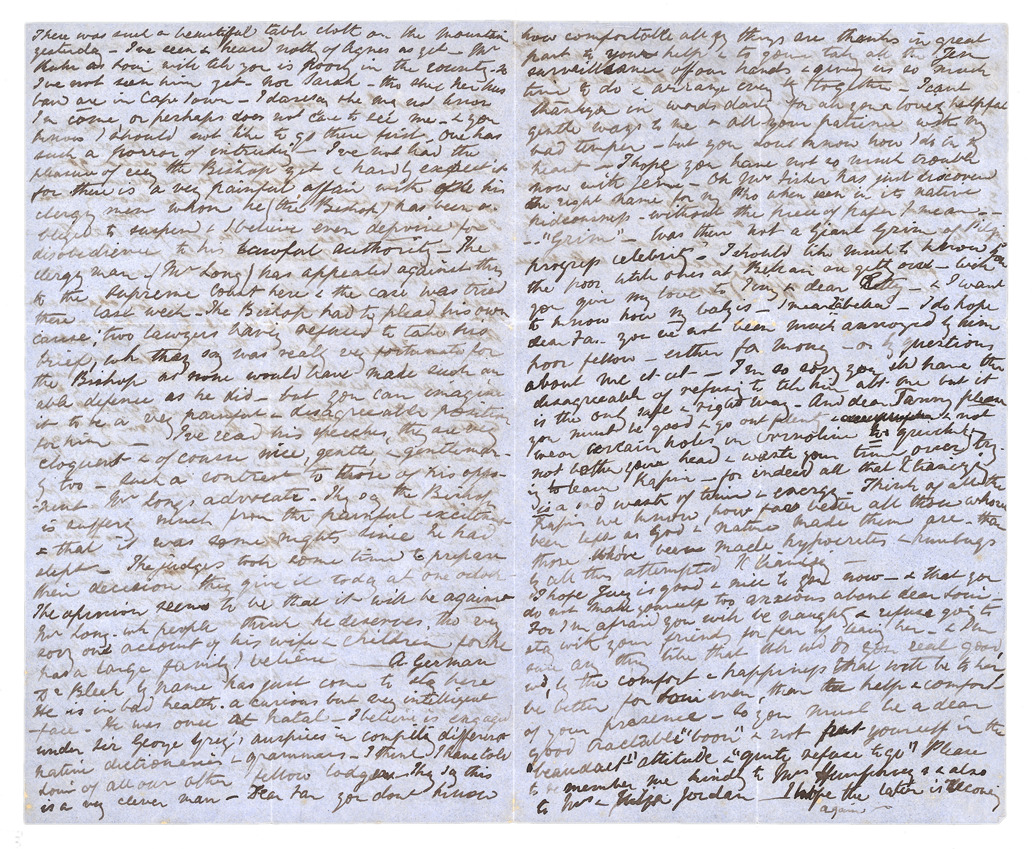 There was such a beautiful table cloth on the mountain
yesterday - I've seen & heard noth of Agnes as yet - Mr
Louis will tell you is poorly in the country - &
I've not seen him yet nor Sarah - tho she & her hus
band are in Cape Town - I daresay she may not know
I'm come, or perhaps does not care to see me - & you
know I should not like to go there first, one has
such a horror of intruding - I've not had the
pleasure of seeg the Bishop yet & hardly expect it
for there is a very painful affair with one of his
clergy men whom he (the Bishop) has been o-
bliged to suspend & I believe even deprive for
disobedience to his lawful authority - The
clergyman - (Mr Long) has appealed against this
to the Supreme Court here & the case was tried
there last week - The Bishop had to plead his own
cause, two lawyers having refused to take his
brief, wh they say was really very fortunate for
the Bishop as none would have made such an
able defence as he did - but you can imagine
it to be a very painful & disagreeable position
for him - I've read his speeches, they are very
eloquent & of course nice, gentle & gentleman-
ly too - such a contrast to those of his oppo-
nent Mr Longs advocate. They say the Bishop
is sufferg much from the painful excitemt
& that it was some nights since he had
slept - The judges took some time to prepare
their decision, they give it today at one oclock
The opinion seems to be that it will be against
Mr Long - wh people think he deserves, tho very
sorry on account of his wife & children for he
has a large family I believe - A German
Dr Bleek by name has just come to stay here
He is in bad health - a curious but very intelligent
face - He was over at Natal - I believe is engaged
under Sir George Grey's auspices in compilg different
native dictionaries & grammars - I think I have told
Louis of all our other fellow lodgers They say this
is a very clever man - Dear Fan you dont know
how comfortable all my things are thanks in great
part to your help & to your takg all the
surveillance off our hands & giving us so much
time to do & arrange every thg together - I cant
thank you in words darlg for all your loving helpful
gentle ways to me & all your patience with my
bad temper - but you dont know how I do in my
heart - I hope you have not so much trouble
now with Jessie - Oh Mr Fisher has just discovered
the right name for my when seen in its native
hideousness - without the piece of paper I mean - -
- "Grim" - was there not a Giant Grim of Pilgr
progress celebrity - I should like much to know how
the poor little ones at Bethan are gettg on - Will
you give my love to & dear & I want
to know how my baby is - I mean - I do hope
dear Fan you've not been much annoyed by him
poor fellow - either for money - or by questions
about me et-cet - I'm so sorry you shd have the
disagreeable of refusing to tell him abt me but it
is the only safe & right way - And dear Fanny please
you must be good & go out plenty & not
wear certain holes in & not
not bother your head & waste your time over try
ing to learn Kafir - for indeed all that
is a sad waste of time & energy - Think of all the
Kafirs we know, how far better all those whove
been left as God & nature made them are - than
those whove been made hypocrites & humbugs
by all this attempted Xtianizg
I hope Guy is good & nice to you now - & that you
do not make yourself too anxious about dear Louis -
For I'm afraid you will be naughty & refuse going to
stay with your friends for fear of leavg her - & I'm
sure any thing like that wh wd do you real good,
wd, by the comfort & happiness that will be to her
be better for Louis even, than the help & comfort
of your presence - so you must be a dear
good tractable "boou" & not put yourself in the
attitude & "quietly refuse to go" Please
to be remember me kindly to Mrs Humphreys & also
to Mrs & Jordan - I hope the latter is recoverg
again